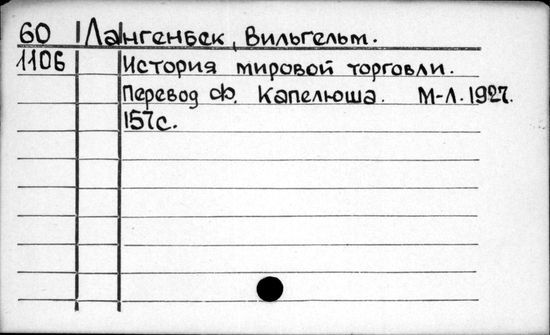 60 Лангенбек, Вильгельм.
1106 История мировой торговли.
Перевод Ф. Капелюша. М-Л. 1927.
157с.